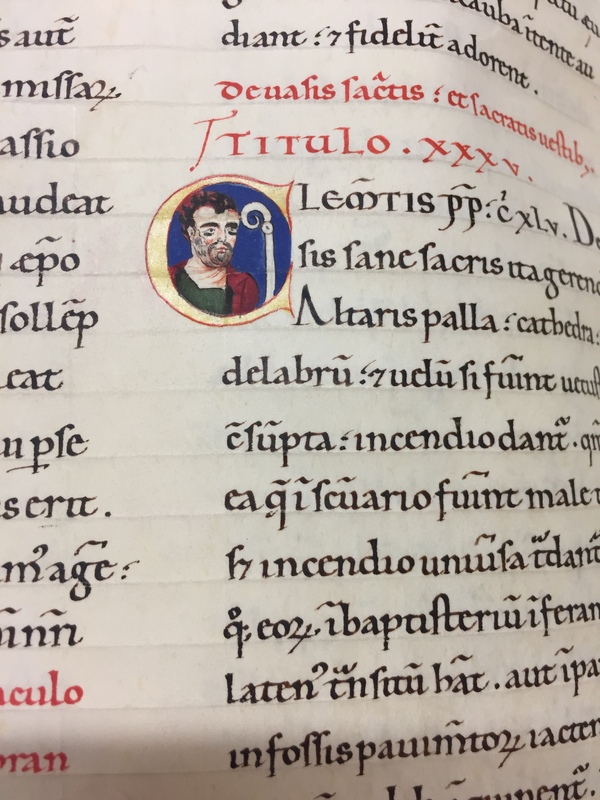 s aut̃
missaꝝ.
assio
audeat
ep̃o
sollẽp
eat
u p̲se
s erit.
m̾agẽ:
aculo
oran
diant : ⁊ fidelit̃ adorent.
de uasis sac̃tis : et sacratis uestib;.
TITULO . xxxv.
CLEM̃TIS pp̃ : c̾ xlv. De
sis sane sacris ita gerend
Altaris palla : cathedra :
delabrũ : ⁊ uelũ si fuĩnt uetust
c̃sũpta : incendio dant̃ . qm̃
ea q̃ ĩ sc̃uario fuĩnt male t
sꝫ incendio uniũsa t̃dant̃
eoꝝ . ĩ baptisteriũ ĩferan
laten̾ t̃nsitũ hãt . aut ĩ pa
in fossis pauim̃toꝝ iacten